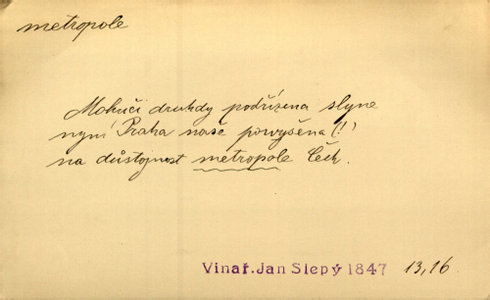 metropole
Mohučí druhdy podřízena slyne
nyní Praha naše povýšena (!)
na důstojnost metropole Čech.
Vinař. Jan Slepý 1847 13,16.